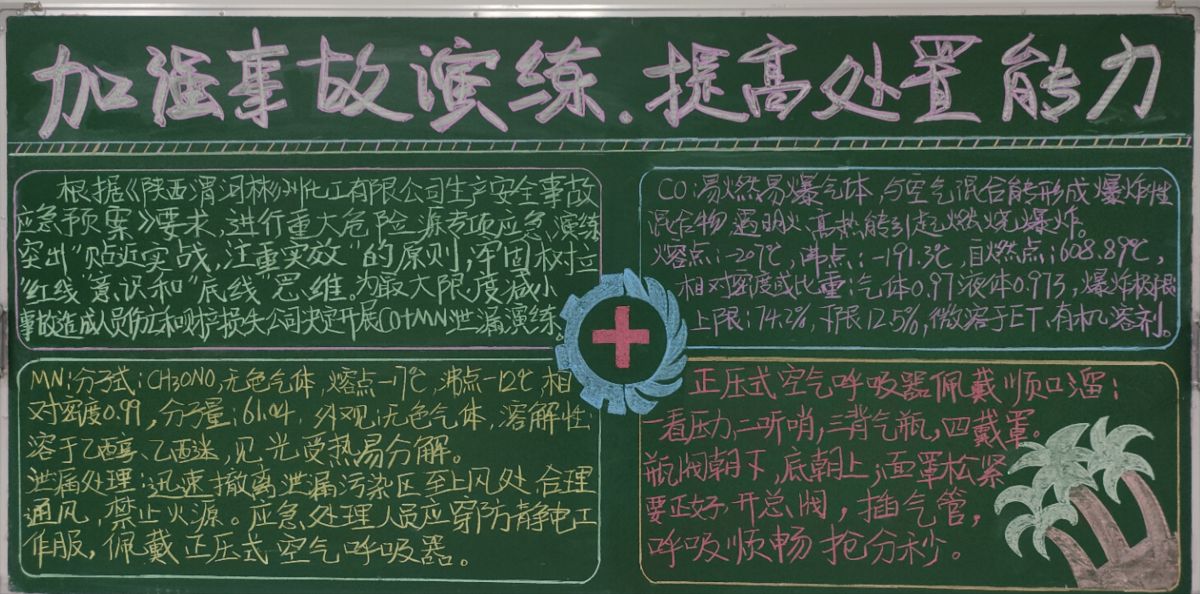 加强事故演练、提高处置能力
根据《陕西渭河彬州化工有限公司生产安全事故
应急预案》要求,进行重大危险源专项应急演练
突出"贴近实战,注重实效"的原则,牢固树立
"红线"意识和"底线"思维。为最大限度减小
事故造成人员伤亡和财产损失公司决定开展CO+MN泄漏演练。
CO:易燃易爆气体,与空气混合能形成爆炸性
混合物,遇明火、高热能引起燃烧爆炸。
熔点:-207℃,沸点:-191.3℃,自燃点:608.89℃,
相对密度或比重:气体0.97液体0.973,爆炸极限
上限:74.2%,下限12.5%,微溶于ET、有机溶剂。
MN:分子式:CH3ONO,无色气体,熔点-17℃,沸点-12℃,相
对密度0.99,分子量:61.04,外观:无色气体,溶解性
溶于乙醇、乙醚,见光受热易分解。
泄漏处理:迅速撤离泄漏污染区至上风处,合理
通风,禁止火源。应急处理人员应穿防静电工
作服,佩戴正压式空气呼吸器。
正压式空气呼吸器佩戴顺口溜:
一看压力,二听哨,三背气瓶,四戴罩。
瓶阀朝下,底朝上;面罩松紧
要正好开总阀,插气管,
呼吸顺畅抢分秒。